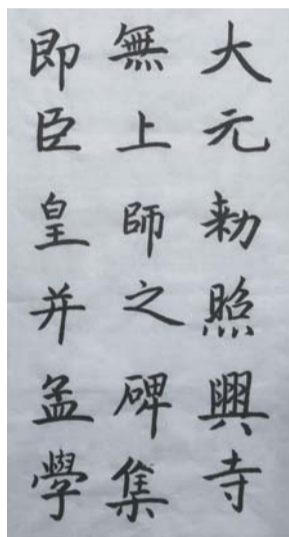 大元勑照興寺
無上師之碑集
即臣皇并孟學